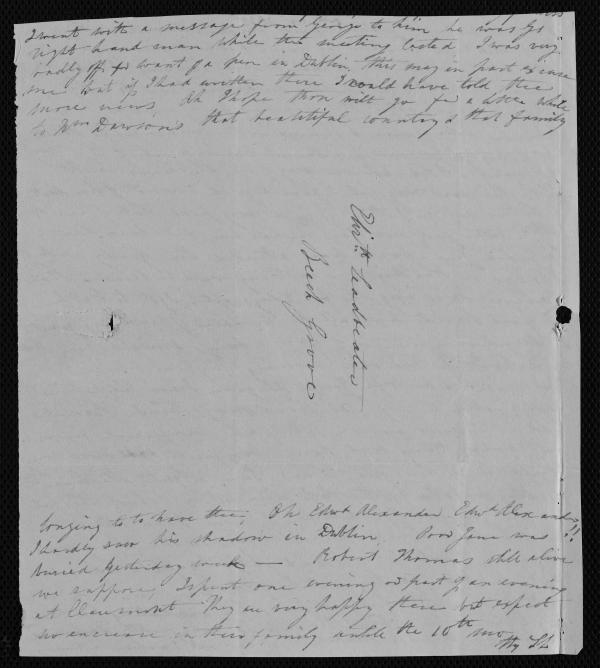 I went with a message from George to him he was Gs
right hand man while the meeting lasted I was very
badly off for want of a pen in Dublin this may in part excuse
me but if I had written there I could have told thee
more news Oh I hope thou wilt go for a little while
to Wm Dawson's that beautiful country & that family
Edwd Leadbeater
Beech Grove
longing to to have thee, Oh Edwd Alexander Edwd Alexander!!
I hardly saw his shadow in Dublin Poor Jane was
buried yesterday week — Robert Thomas still alive
we suppose, I spent one evening or part of an evening
at Clearmont They are very happy there but expect
no increase in their family until the 10th mo
thy